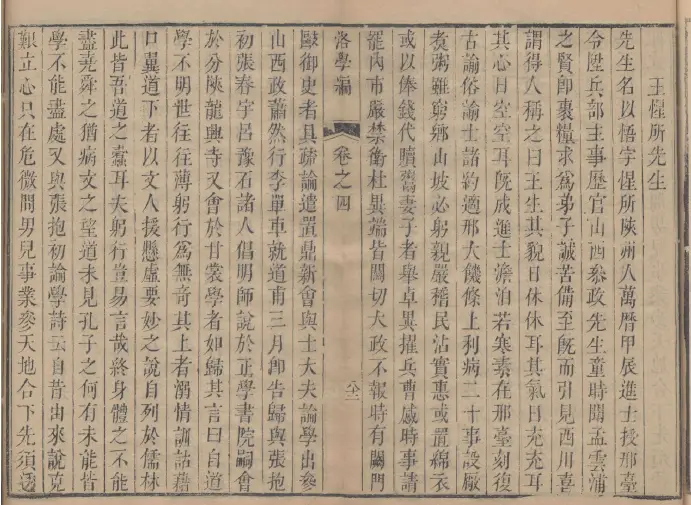 王惺所先生
先生名以悟字惺所陝州人萬曆甲辰進士授邢臺
令陞兵部主事歷官山西叅政先生童時聞孟雲浦
之賢即裹糧求爲弟子誠苦備至既而引見西川喜
謂得人稱之曰王生其貌日休休耳其氣日充充耳
其心日空空耳既成進士澹泊若寒素在邢臺刻復
古諭俗諭士諸約適邢大饑條上利病二十事設厰
煑粥雖窮鄉山坡必躬親嚴稽民沾實惠或置綿衣
或以俸錢代贖鬻妻子者舉卓異擢兵曹感時事請
罷內市嚴禁衞杜異端皆關切大政不報時有關門
洛學編 卷之四 八二
毆御史者具疏論遣置鼎新會與士大夫論學出叅
山西政蕭然行李單車就道甫三月卽告歸與張抱
初張春宇呂豫石諸人倡明師說於正學書院嗣會
於分陜龍興寺又會於甘棠學者如歸其言曰自道
學不明世往往薄躬行爲無奇其上者溺情訓詁藉
口異道下者以文人援懸虛要妙之說自列於儒林
此皆吾道之蠹耳夫躬行豈易言哉終身體之不能
盡堯舜之猶病文之望道未見孔子之何有未能皆
學不能盡處又與張抱初論學詩云自昔由來說克
艱立心只在危微間男兒事業叅天地合下先須透